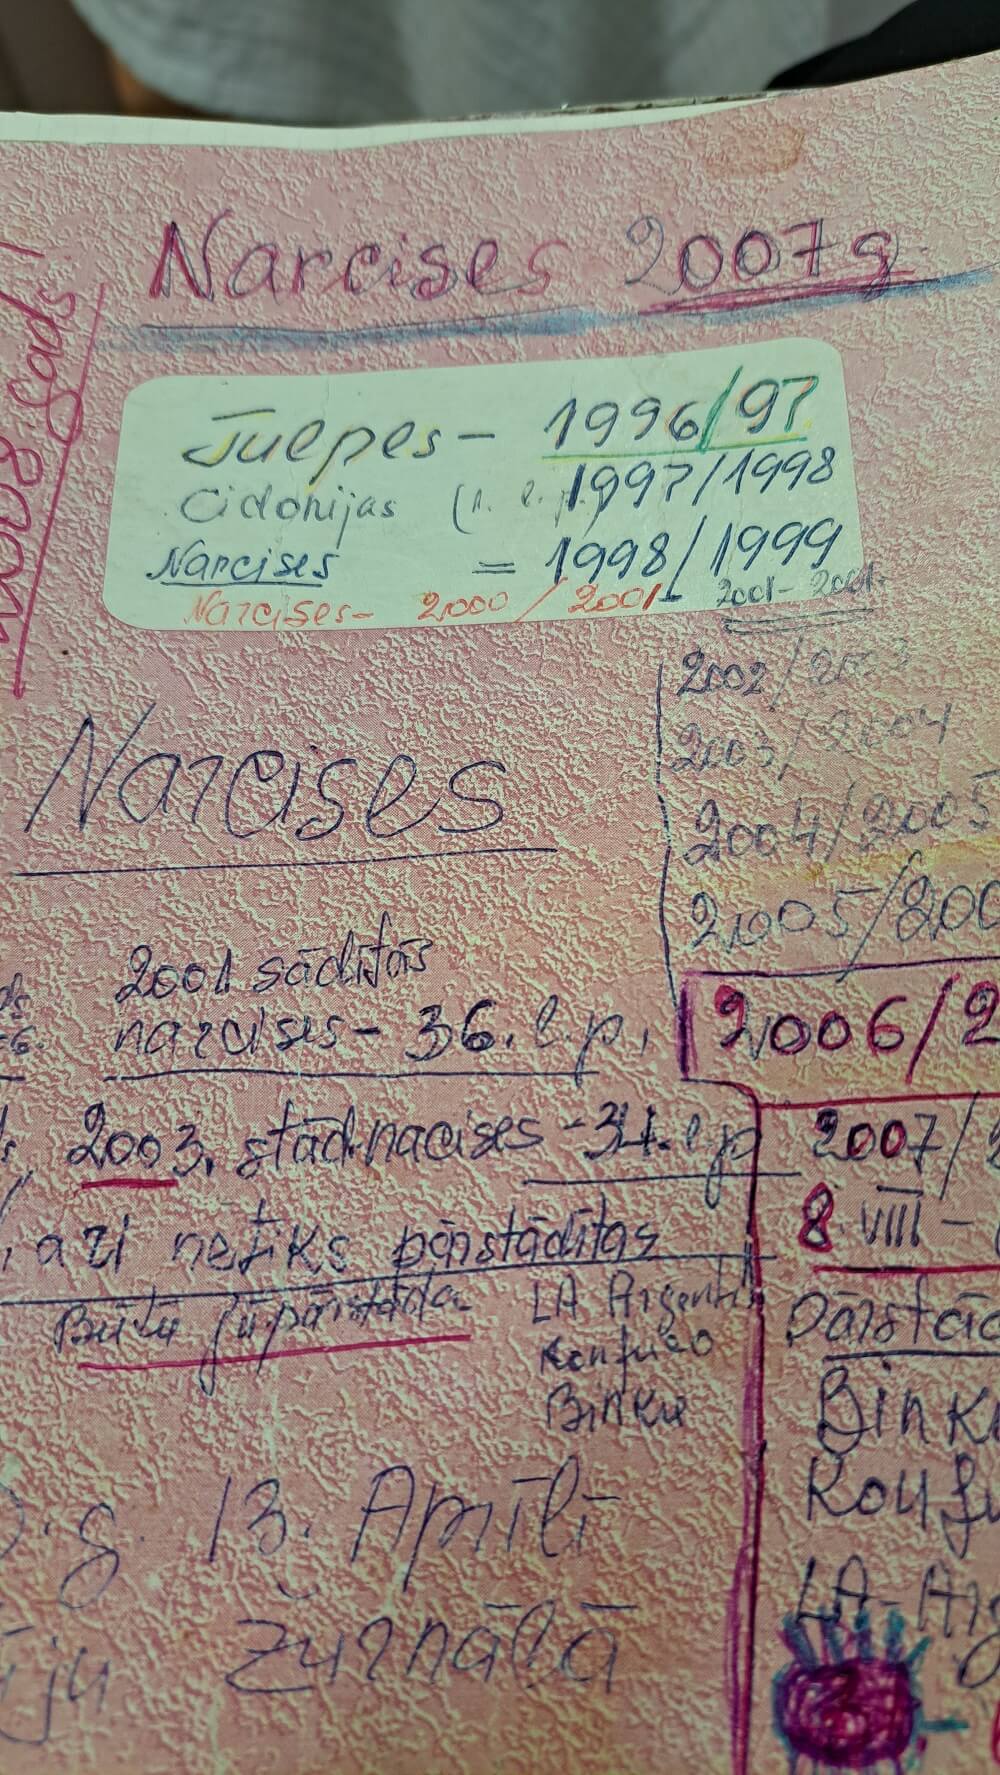 Narcises 2007g
2008 gads!
Tulpes - 1996/97
Cidonijas (1. l.p.) 1997/1998
Narcises = 1998/1999
Narcises - 2000 / 2001 - 2001 - 2001.
2002/2003
2003/2004
2004/2005
2005/200
Narcises
2001 sādītās
narcises - 36. l.p.
2006/2
2003. stād.nacises - 34. l p
2007/
8. VIII -
, arī netiks pārstādītas
Būtu jāpārstāda
LA Argentin
Konfuco
Binkie
Pārstād
Bink
Konfu
LA-Arg
g. 13. Aprīlī
Žurnālā